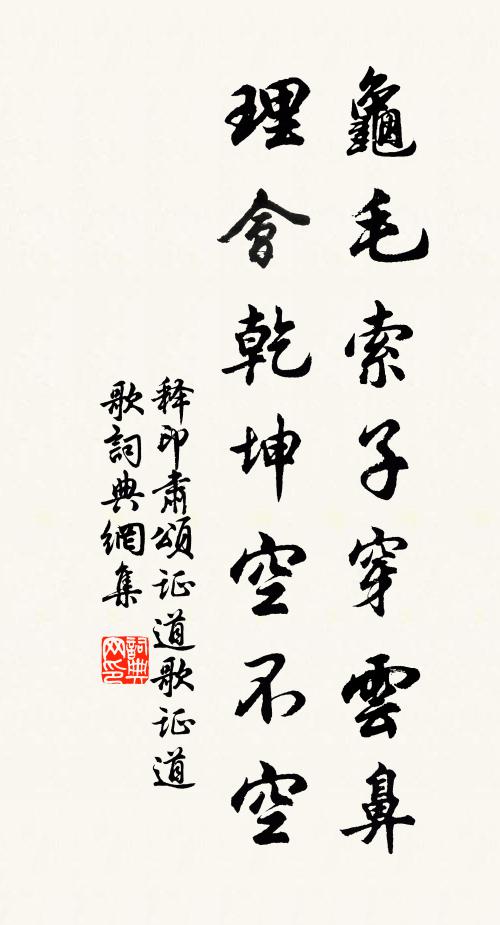 龜毛索子穿雲鼻
理會乾坤空不空
释印肅頌证道歌证道
歌詞典網集
詞典網印